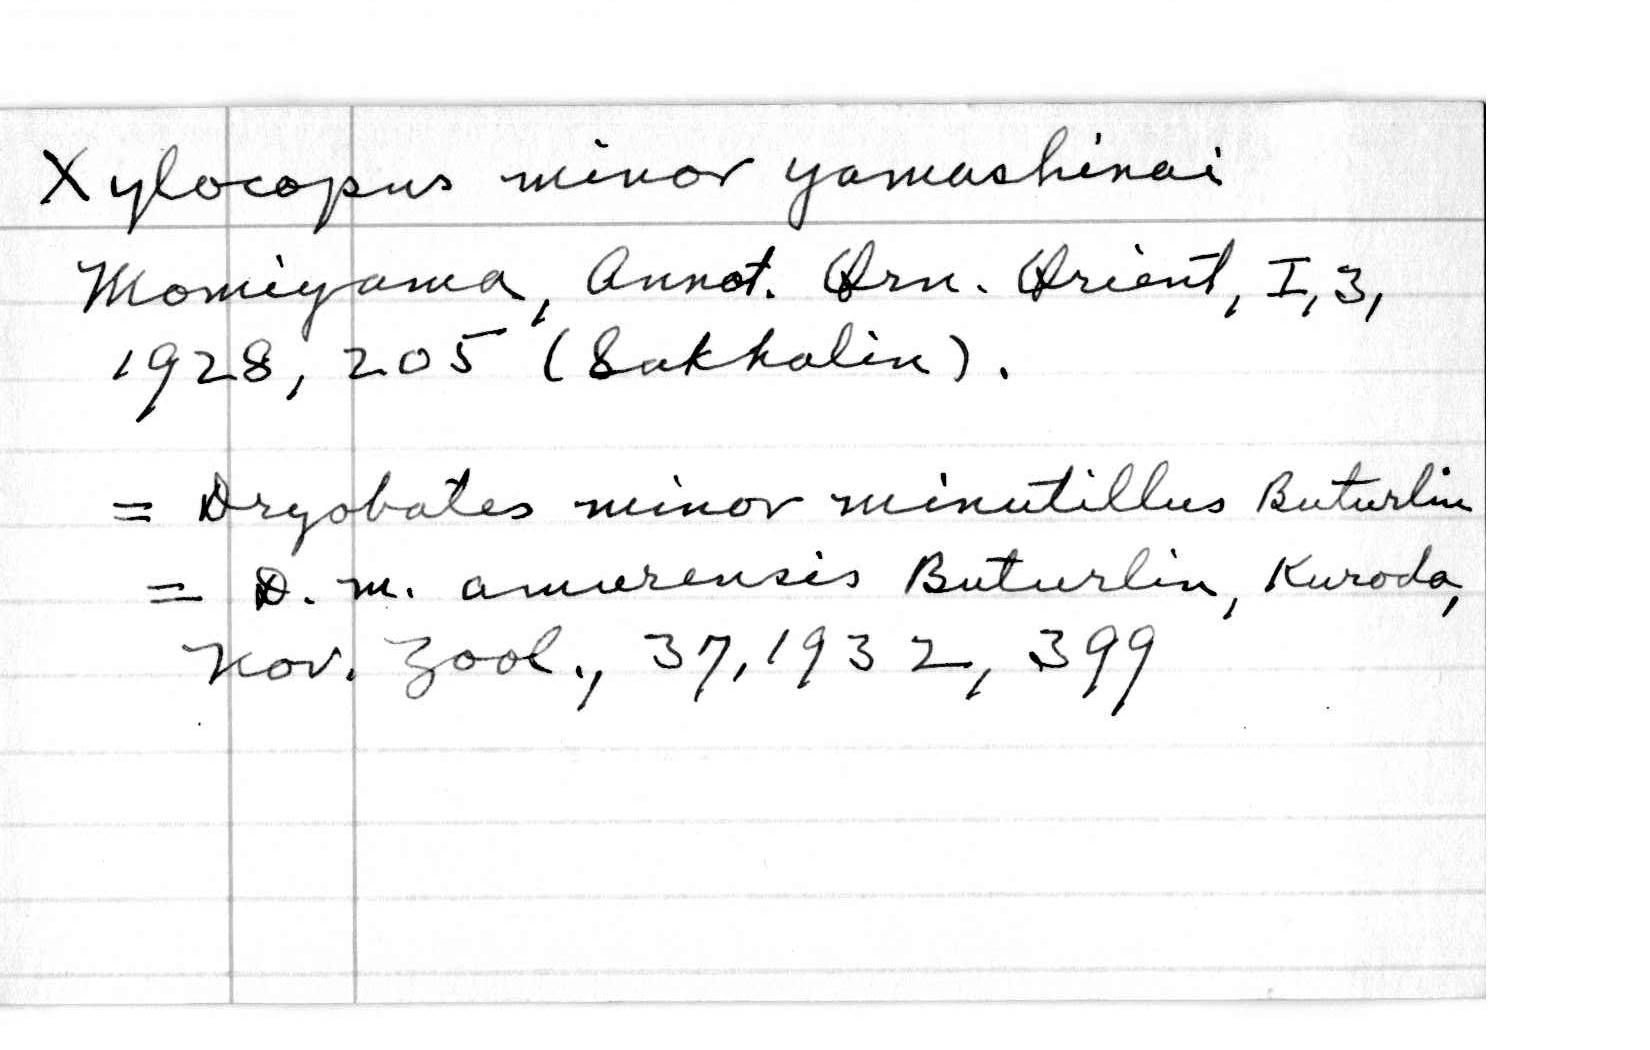 Xylocopus minor yamashinai
Momiyama, Annot. Orn. Orient, I, 3,
1928, 205 (Sakhalin).
= Dryobates minor minutillus Buturlin
= D. m. amurensis Buturlin, Kuroda,
Nov. Zool., 37, 1932, 399